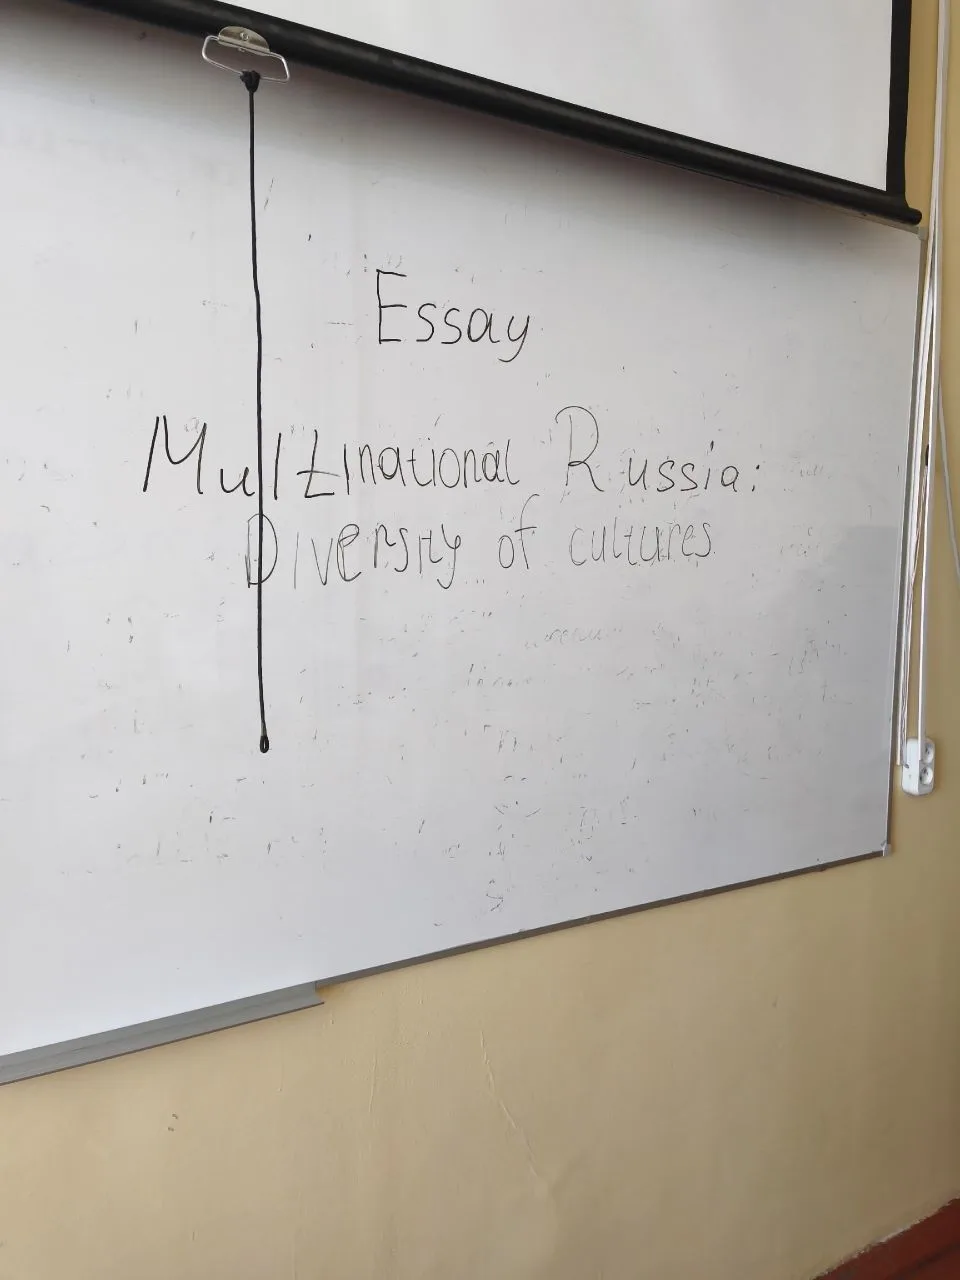 Essay
Multinational Russia:
Diversity of cultures